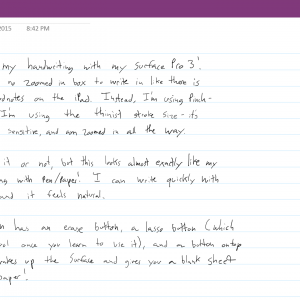 2015 8:42 PM
my handwriting with my Surface Pro 3!
no zoomed in box to write in like there is
notes on the iPad. Instead, I'm using Pinch-
I'm using the thinist stroke size - its
sensitive, and am zoomed in all the way.
it or not, but this looks almost exactly like my
ng with pen/paper! I can write quickly with
and it feels natural.
n has an erase button, a lasso button (which
ol once you learn to use it), and a button ontop
akes up the Surface and gives you a blank sheet
paper!